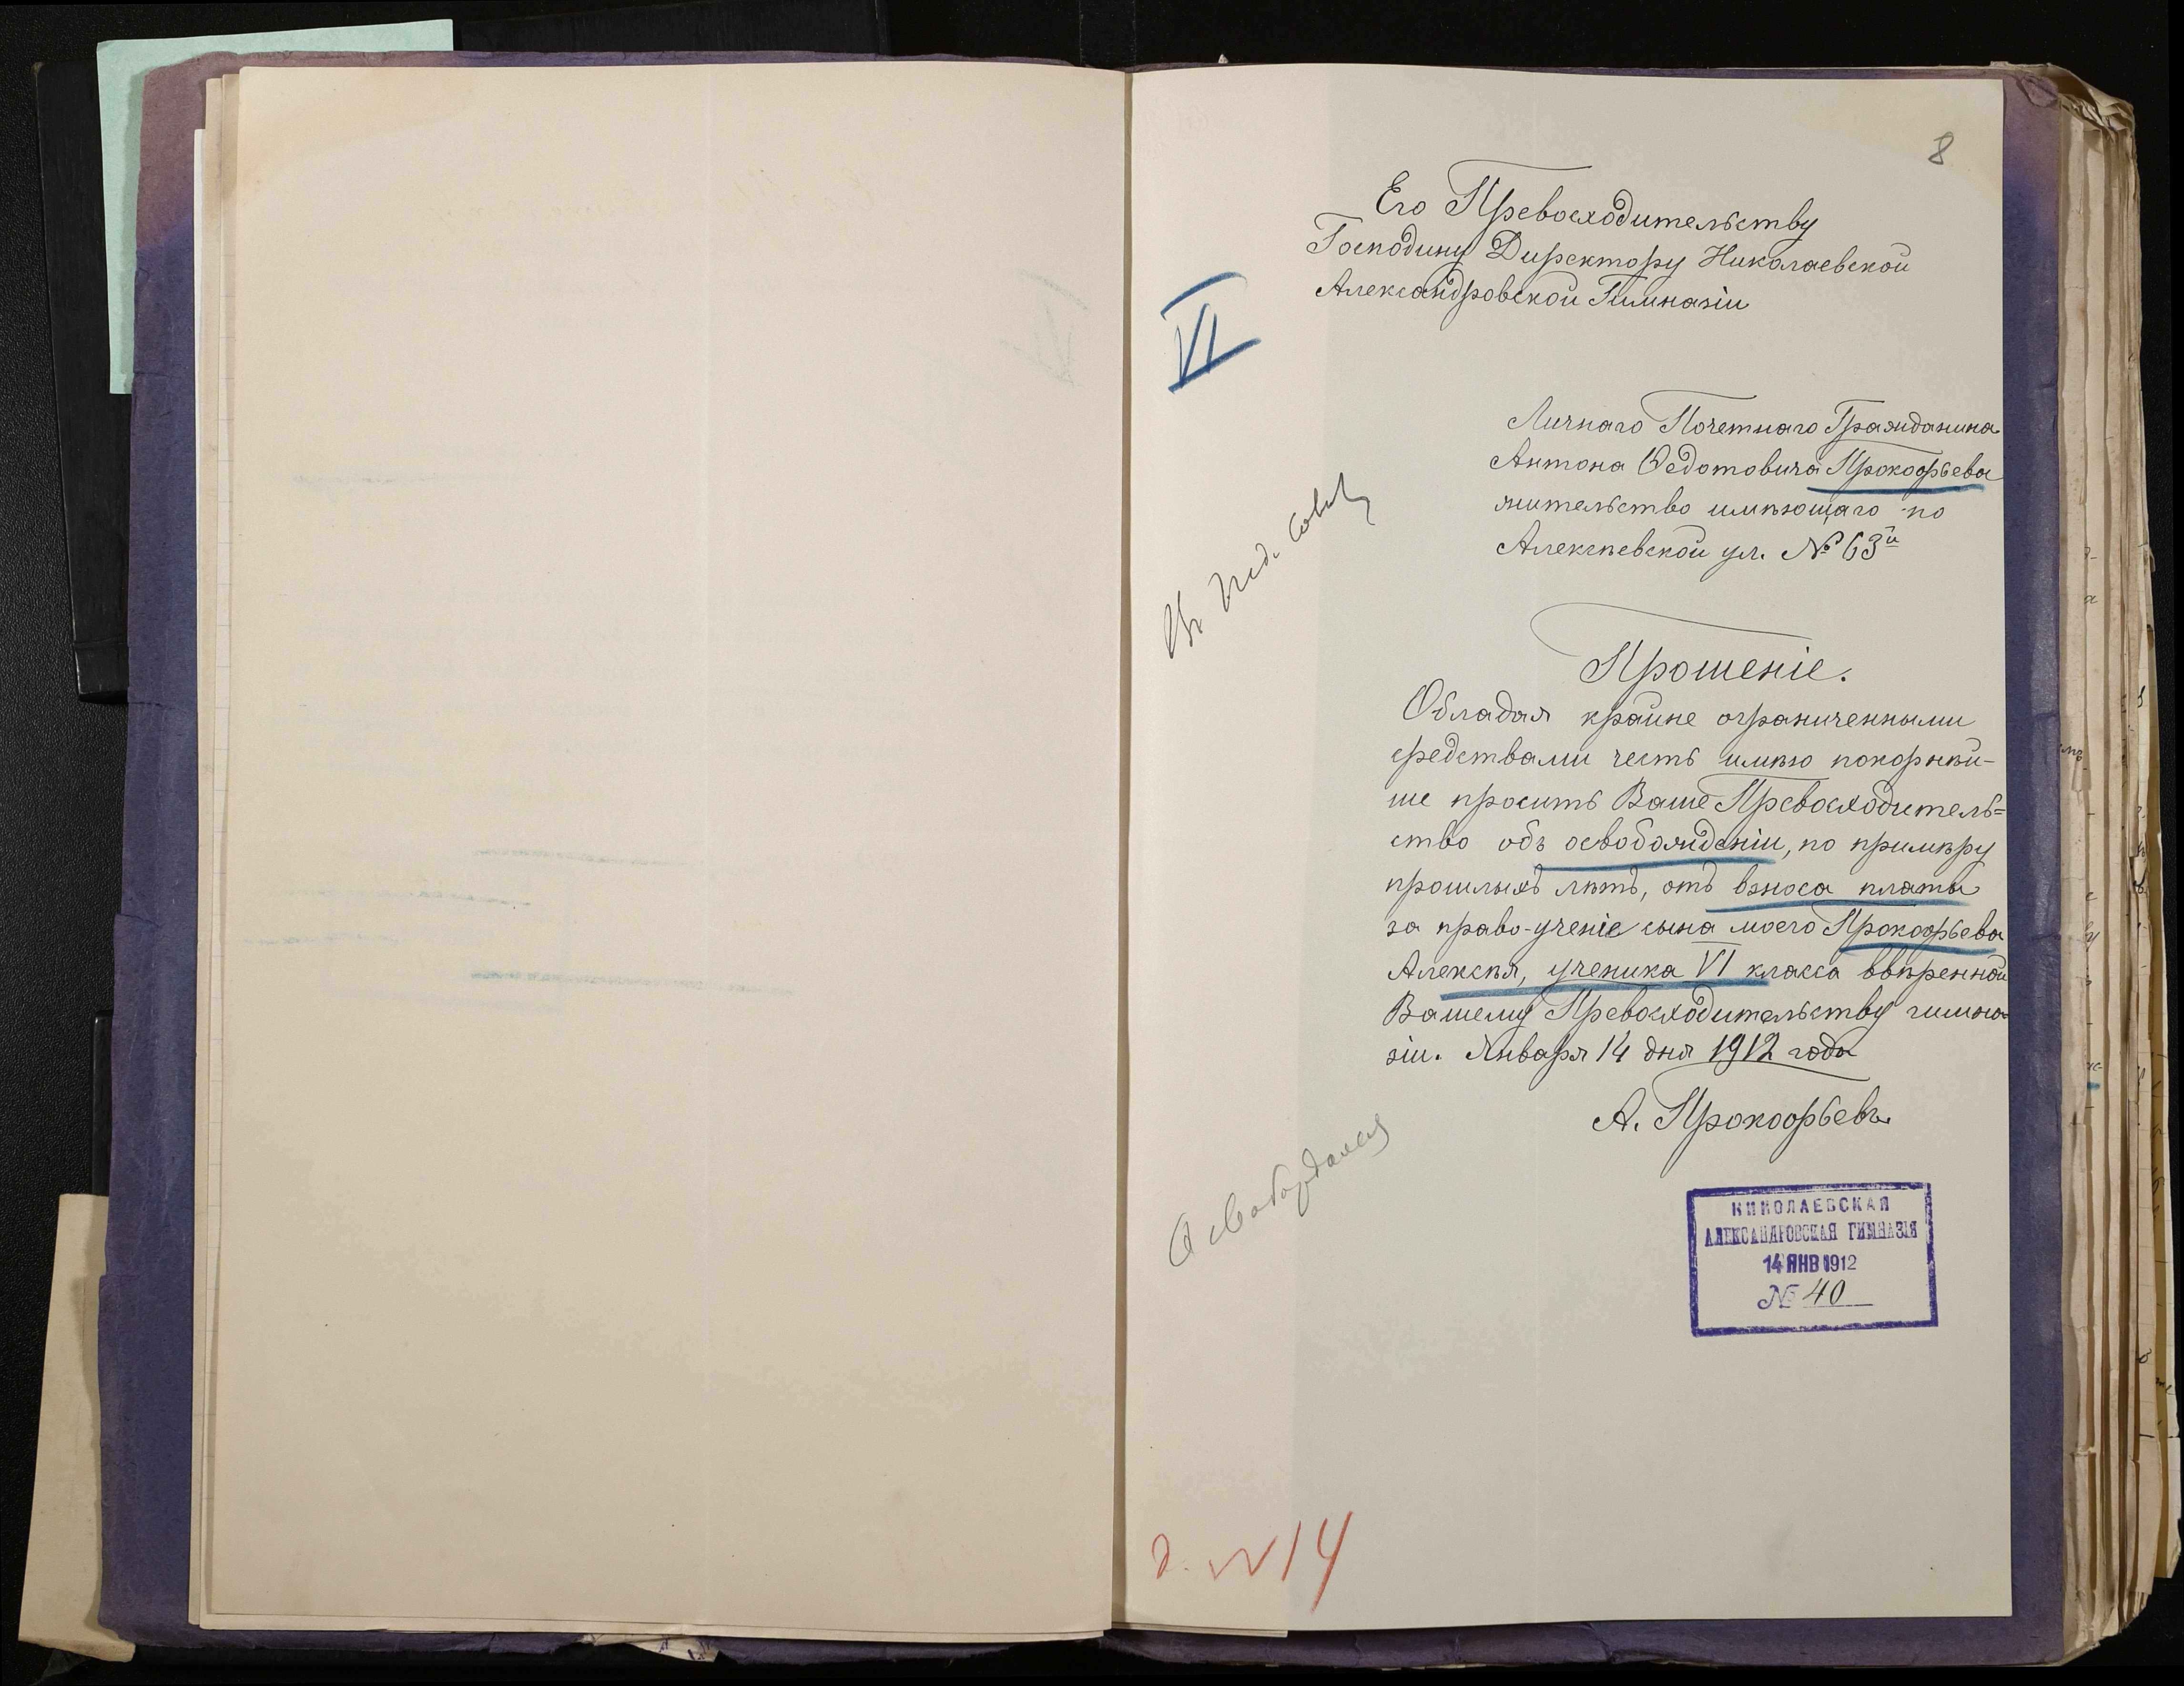 8
Его Превосходительству
Господину Директору Николаевской
Александровской Гимназіи
VI
Личнаго Почетнаго Гражданина
Антона Федотовича Прокофьева
жительство имѣющаго по
Алексѣевской ул. № 63й
Въ Пед. Совѣтъ
Прошеніе.
Обладая крайне ограниченными
средствами честь имѣю покорнѣй-
ше просить Ваше Превосходитель=
ство объ освобожденіи, по примѣру
прошлыхъ лѣтъ, отъ взноса платы
за право-ученіе сына моего Прокофьева
Алексѣя, ученика VI класса ввѣренной
Вашему Превосходительству гимна-
зіи. Января 14 дня 1912 года
А. Прокофьевъ.
НИКОЛАЕВСКАЯ
АЛЕКСАНДРОВСКАЯ ГИМНАЗІЯ
14 ЯНВ 1912
№ 40
д. №14